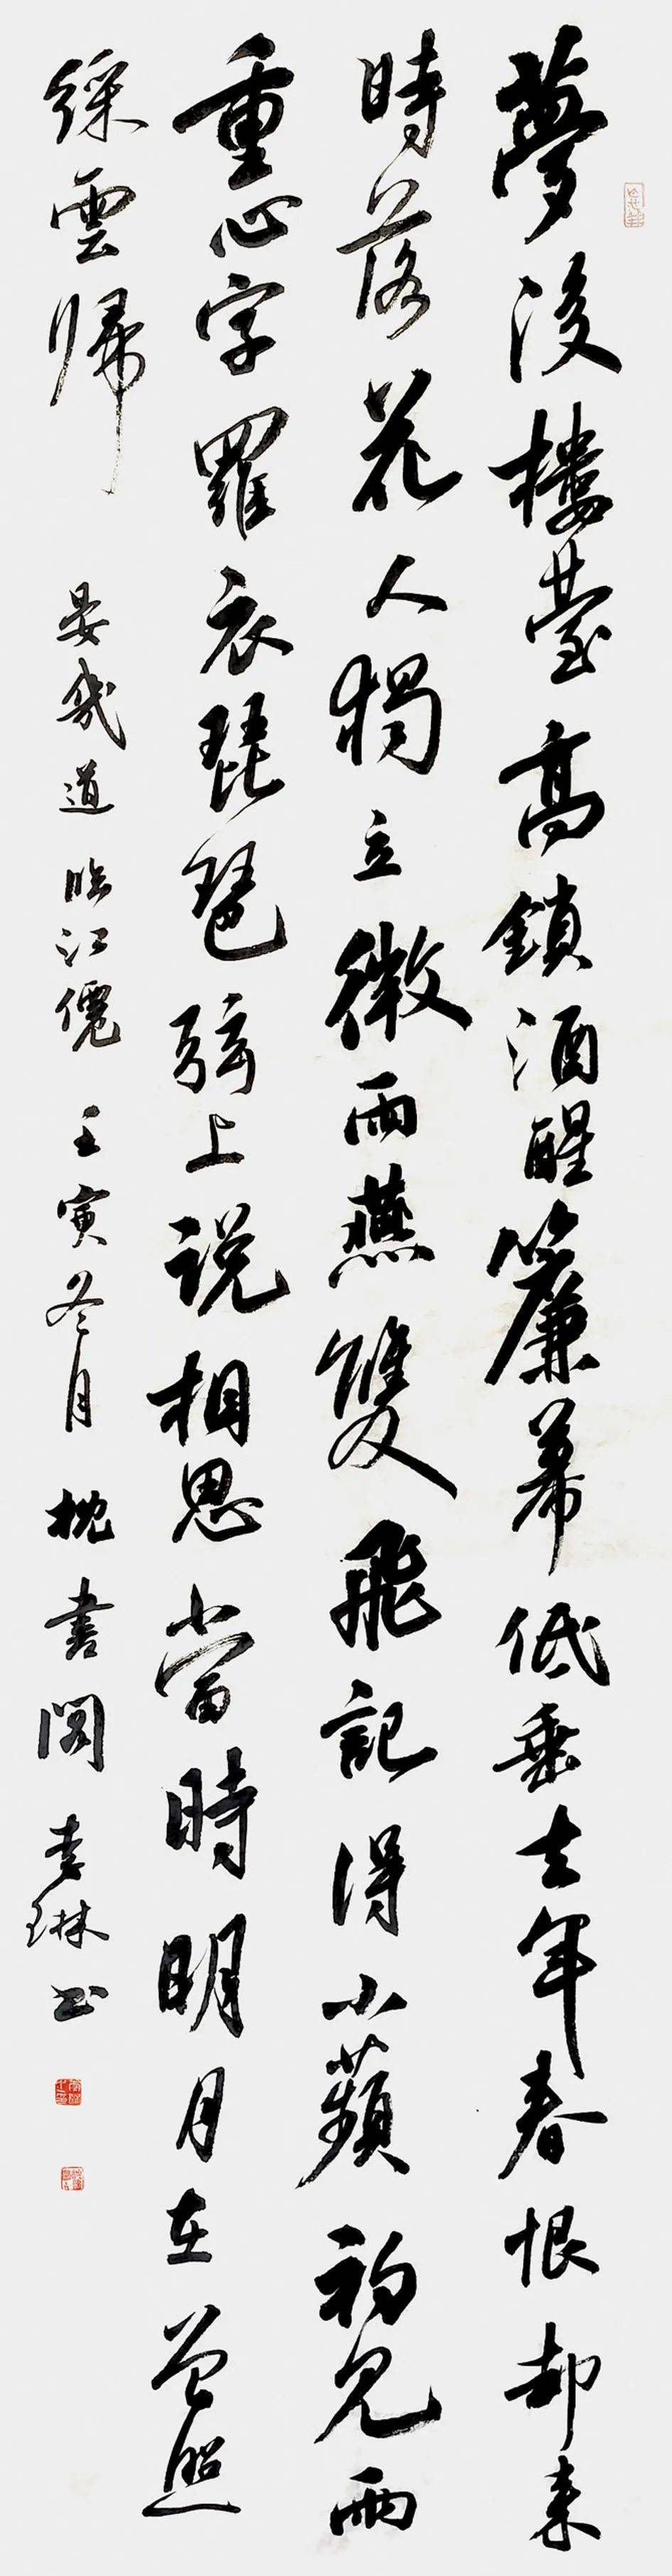 夢後樓臺高鎖酒醒簾幕低垂去年春恨却来
時落花人獨立微雨燕雙飛記得小蘋初見兩
重心字羅衣琵琶弦上说相思當時明月在曾照
綵雲歸
晏幾道臨江僊 壬寅冬月 枕書閣 李琳书